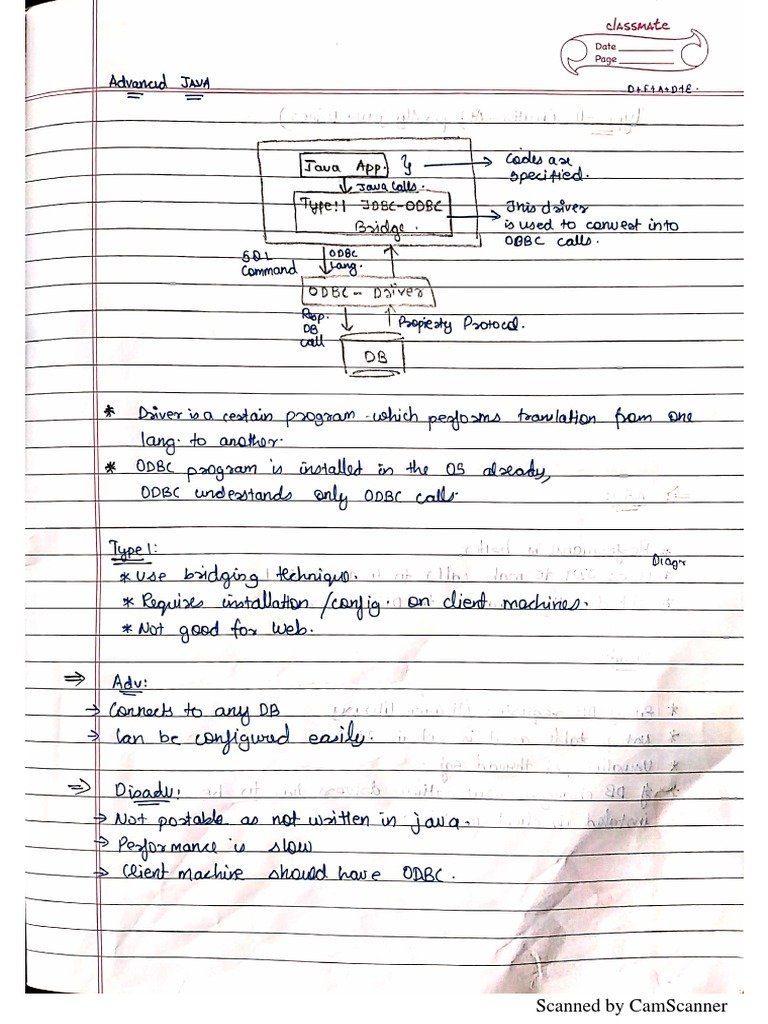 classmate
Date
Page
Advanced JAVA
D+E+A+D+E.
Java App. }
Codes are
specified.
Java calls.
Type:1 JDBC-ODBC
Bridge.
This driver
is used to convert into
ODBC calls.
SQL
Command
ODBC
Lang.
ODBC - Driver
Resp.
DB
call
Propierty Protocol.
DB
* Driver is a certain program which performs translation from one
lang. to another.
* ODBC program is installed in the OS already,
ODBC understands only ODBC calls.
Type 1:
Diagr
* Use bridging technique.
* Requires installation/config. on client machines.
* Not good for web.
⇒ Adv:
→ Connects to any DB
→ Can be configured easily.
⇒ Disadv:
→ Not portable as not written in java.
→ Performance is slow
→ Client machine should have ODBC.
Scanned by CamScanner